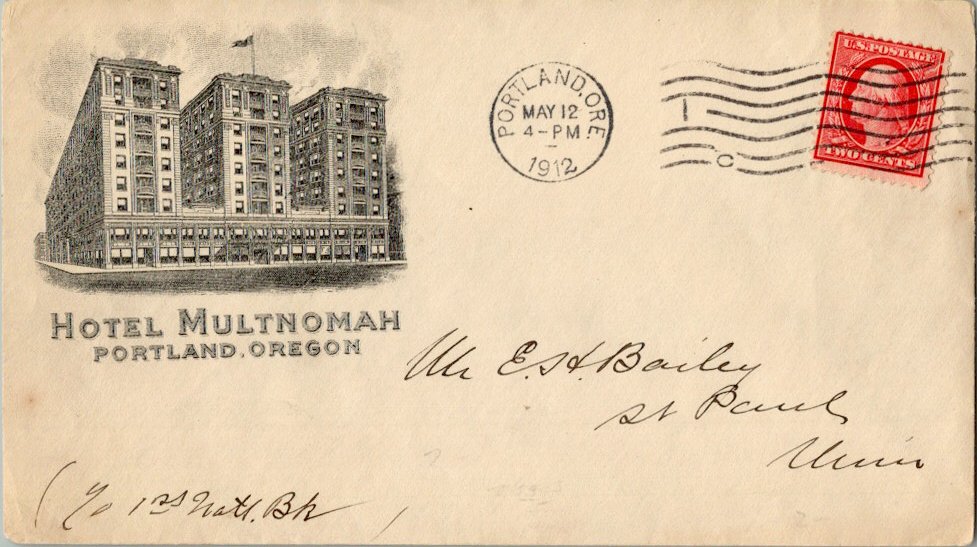 HOTEL MULTNOMAH
PORTLAND, OREGON
PORTLAND, ORE.
MAY 12
4-PM
1912
1
C
U.S. POSTAGE
TWO CENTS
Mr E. H. Bailey
St Paul
Minn
( c/o 1st Natl. Bk )